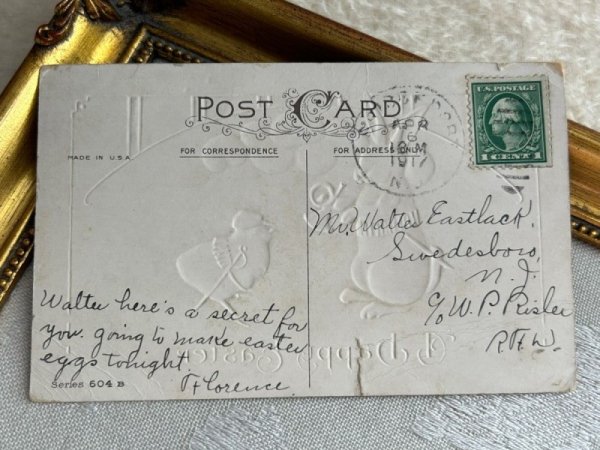 POST CARD
MADE IN U.S.A.
FOR CORRESPONDENCE
FOR ADDRESS ONLY
APR
6
M
1917
N.J.
U.S. POSTAGE
1 CENT 1
Mr. Walter Eastlack.
Swedesboro,
N. J.
c/o W. P. Risler
Walter here's a secret for
you. going to make easter
eggs tonight.
Florence
Series 604 B
A Happy Easter